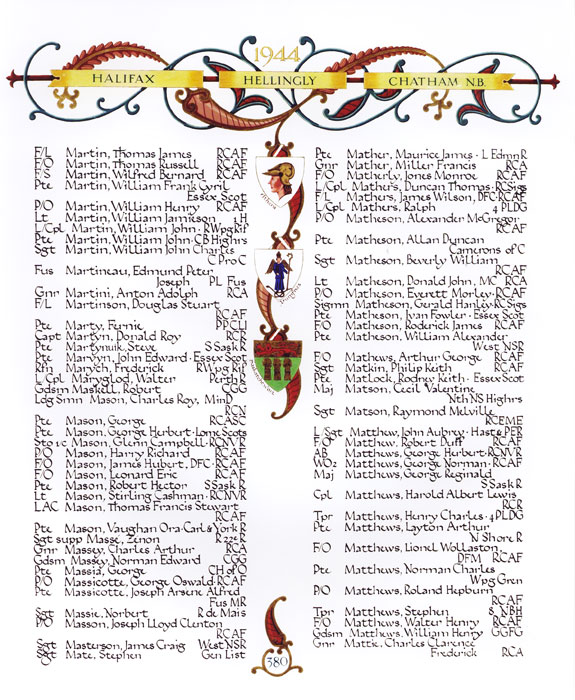 1944
HALIFAX
HELLINGLY
CHATHAM N.B.
F/L Martin, Thomas James RCAF
F/O Martin, Thomas Russell RCAF
F/S Martin, Wilfred Bernard RCAF
Pte Martin, William Frank Cyril
Essex Scot
P/O Martin, William Henry RCAF
Lt Martin, William Jamieson 1 H
L/Cpl Martin, William John · RWpgRif
Pte Martin, William John · CB Highrs
Sgt Martin, William John Charles
C Pro C
Fus Martineau, Edmund Peter
Joseph PL Fus
Gnr Martini, Anton Adolph RCA
F/L Martinson, Douglas Stuart
RCAF
Pte Marty, Furnie PPCLI
Capt Martyn, Donald Roy RCR
Pte Martynuik, Steve S Sask R
Pte Marvyn, John Edward · Essex Scot
Rfn Marych, Frederick RWpg Rif
L Cpl Maryglod, Walter Perth R
Gdsm Maskell, Robert CGG
Ldg Smn Mason, Charles Roy, MinD
RCN
Pte Mason, George RCASC
Pte Mason, George Herbert · Lorne Scots
Sto 1 c Mason, Glenn Campbell · RCNVR
P/O Mason, Harry Richard RCAF
F/O Mason, James Hubert, DFC · RCAF
F/O Mason, Leonard Eric RCAF
Pte Mason, Robert Hector S Sask R
Lt Mason, Stirling Cashman · RCNVR
LAC Mason, Thomas Francis Stewart
RCAF
Pte Mason, Vaughan Ora · Carl & York R
Sgt supp Masse, Zenon R 22e R
Gnr Massey, Charles Arthur RCA
Gdsm Massey, Norman Edward CGG
Pte Massia, George CH of O
P/O Massicotte, George Oswald · RCAF
Pte Massicotte, Joseph Arsene Alfred
Fus MR
Sgt Massie, Norbert R de Mais
P/O Masson, Joseph Lloyd Clenton
RCAF
Sgt Masterson, James Craig West NSR
Sgt Mate, Stephen Gen List
Pte Mather, Maurice James · L Edmn R
Gnr Mather, Miller Francis RCA
F/O Matherly, Jones Monroe RCAF
L/Cpl Mathers, Duncan Thomas · RCSigs
F/L Mathers, James Wilson, DFC · RCAF
L/Cpl Mathers, Ralph 4 PLDG
P/O Matheson, Alexander McGregor
RCAF
Pte Matheson, Allan Duncan
Camerons of C
Sgt Matheson, Beverly William
RCAF
Lt Matheson, Donald John, MC RCA
P/O Matheson, Everett Morley · RCAF
Sigmn Matheson, Gerald Hanley · RCSigs
Pte Matheson, Ivan Fowler · Essex Scot
F/O Matheson, Roderick James RCAF
Pte Matheson, William Alexander
West NSR
F/O Mathews, Arthur George RCAF
Sgt Matkin, Philip Keith RCAF
Pte Matlock, Rodney Keith · Essex Scot
Maj Matson, Cecil Valentine
Nth NS Highrs
Sgt Matson, Raymond Melville
RCEME
L/Sgt Matthew, John Aubrey · Hast & PER
F/O Matthew, Robert Duff RCAF
AB Matthews, George Herbert · RCNVR
WO2 Matthews, George Norman · RCAF
Maj Matthews, George Reginald
S Sask R
Cpl Matthews, Harold Albert Lewis
RCR
Tpr Matthews, Henry Charles · 4 PLDG
Pte Matthews, Layton Arthur
N Shore R
F/O Matthews, Lionel Wollaston,
DFM RCAF
Pte Matthews, Norman Charles
Wpg Gren
P/O Matthews, Roland Hepburn
RCAF
Tpr Matthews, Stephen 8 NBH
F/O Matthews, Walter Henry RCAF
Gdsm Matthews, William Henry GGFG
Gnr Mattie, Charles Clarence
Frederick RCA
380